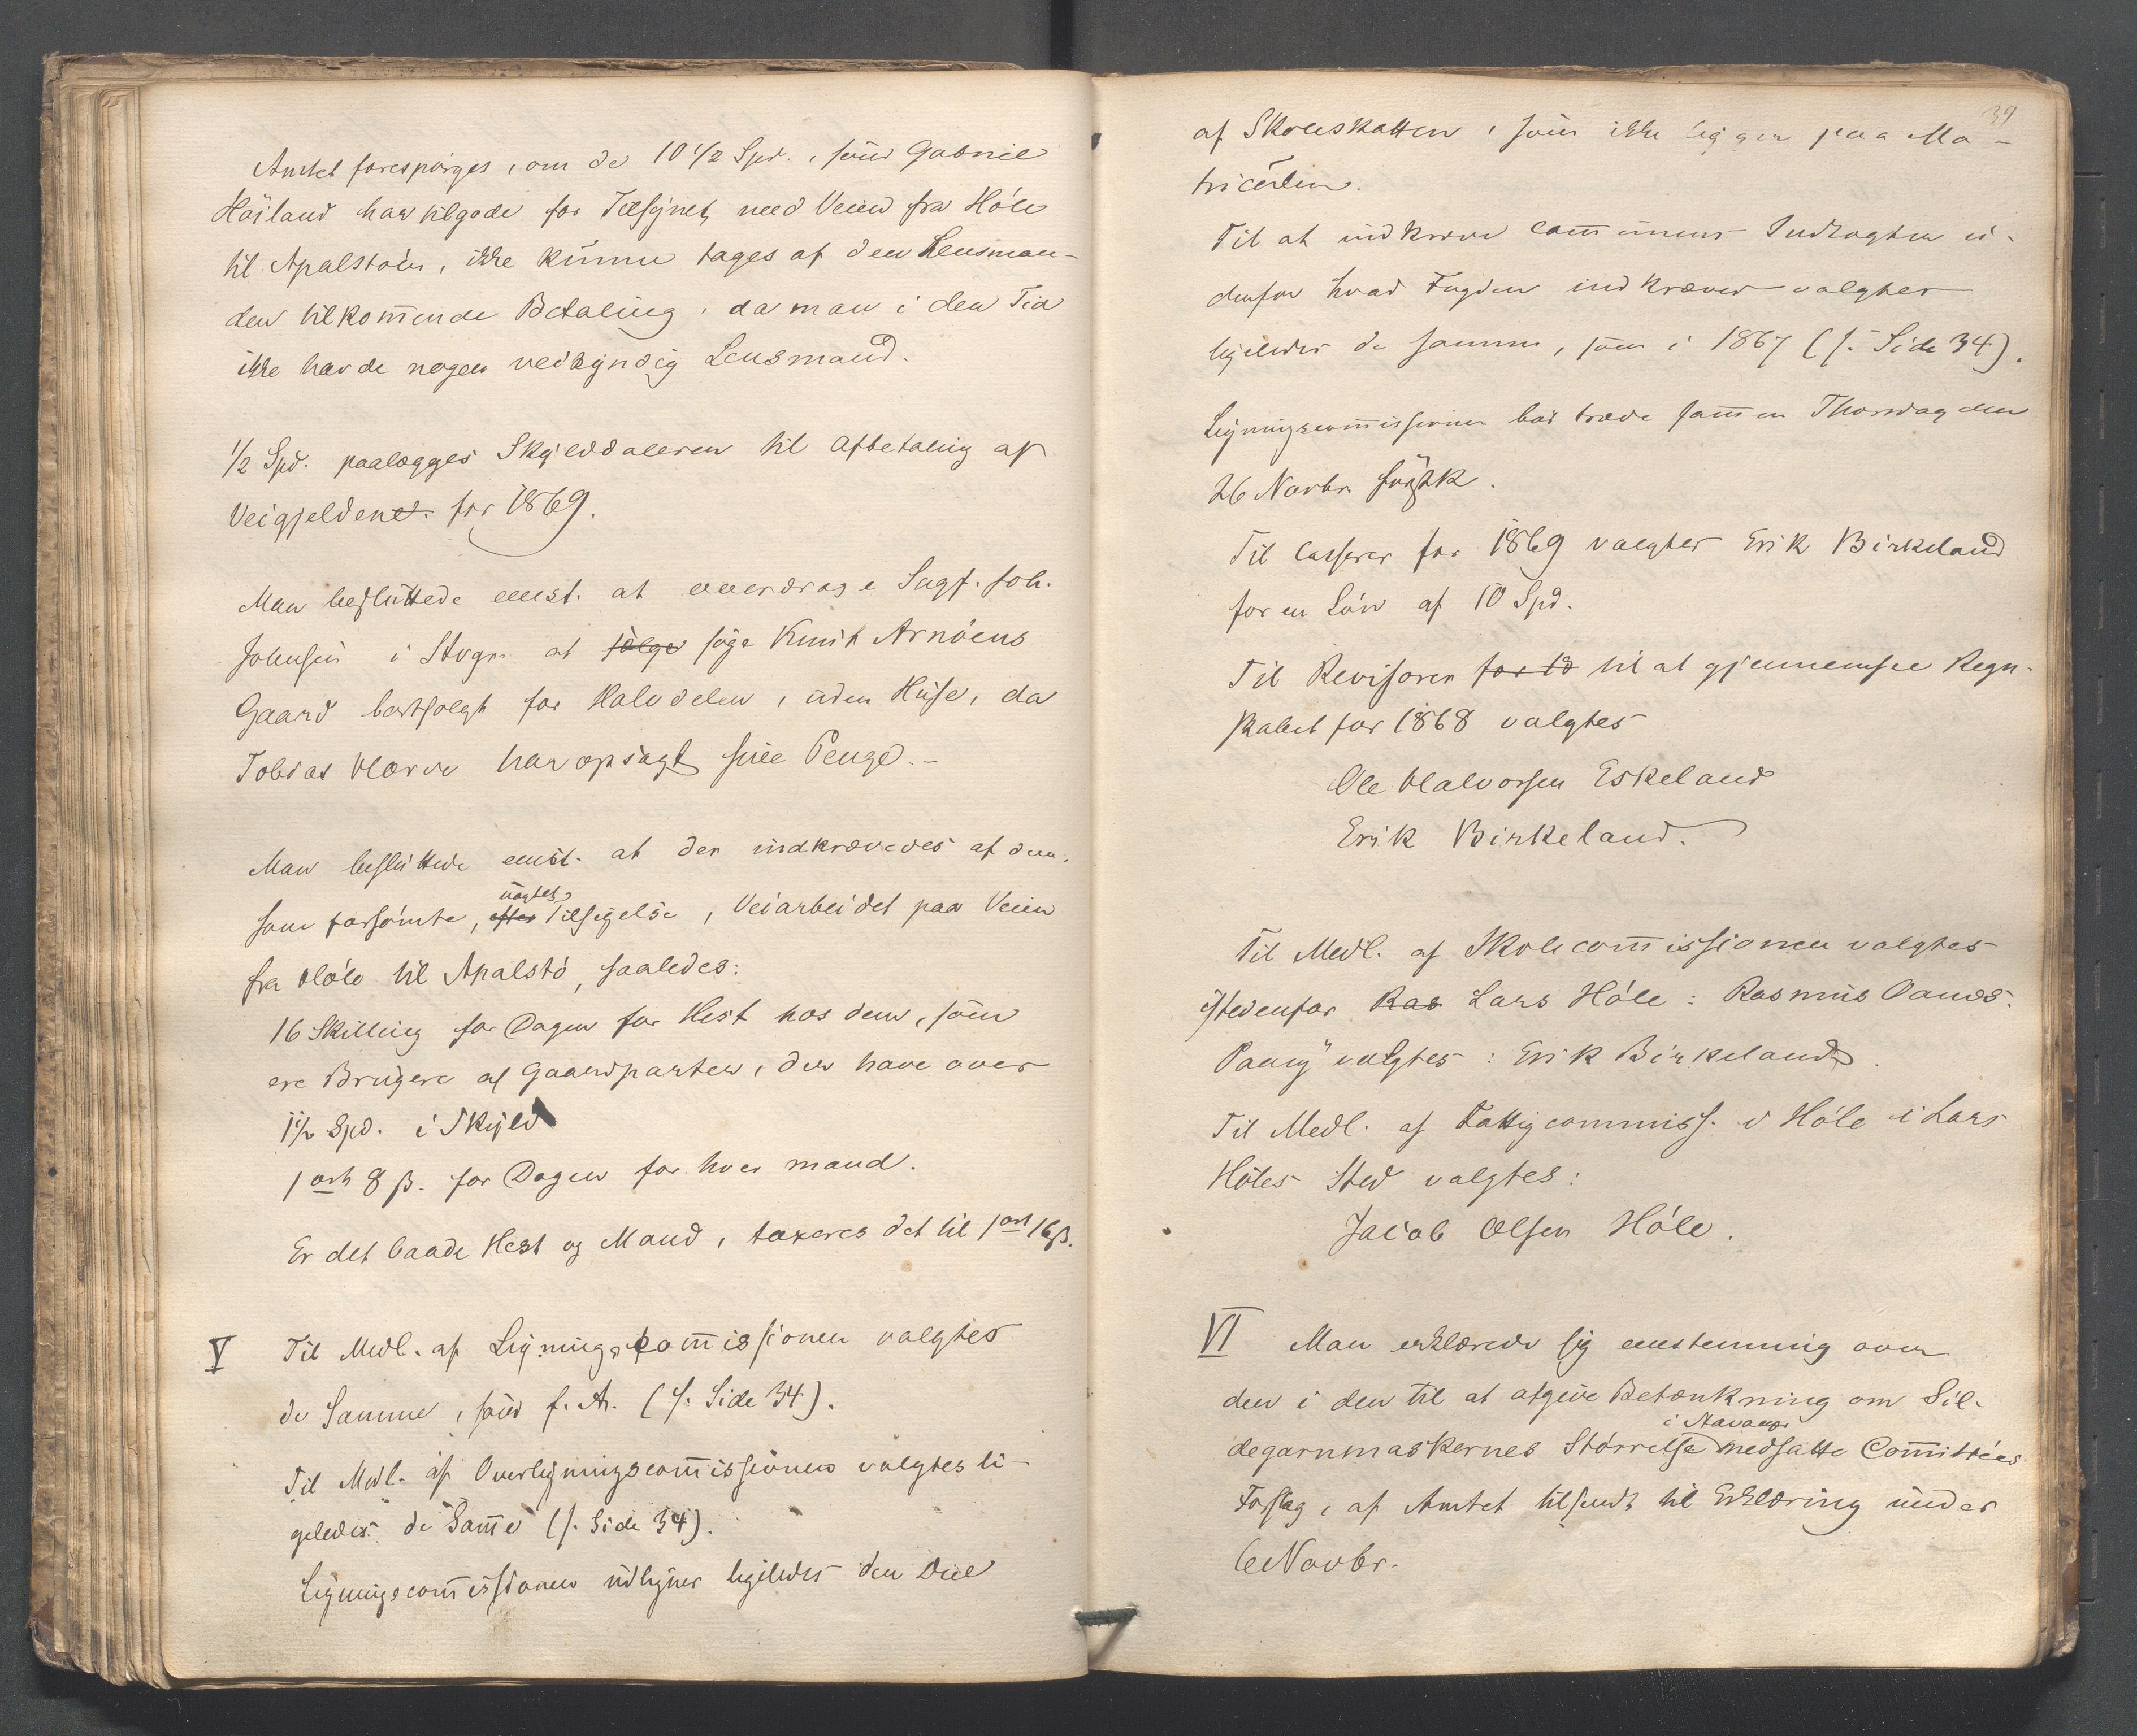 Amtet forespørges, om de 10 1/2 Spd., som Gabriel
Høiland har tilgode for Tilsynet med Veien fra Høle
til Apalstøen, ikke kunne tages af den Lensman-
den tilkom̄ende Betaling, da man i den Tid
ikke havde nogen veikyndig Lensmand.
1/2 Spd. paalægges Skylddaleren til Afbetaling af
Veigjelden for 1869.
Man besluttede eenst. at overdrage Sagf. Joh.
Johnsen i Stvgr. at følge søge Knut Arnøens
Gaard bortsolgt for Halvdelen, uden Huse, da
Tobias Harve har opsagt sine Penge.-
Man besluttede eenst. at der indkrævedes af dem,
nægtes
som forsømte, efter Tilsigelse, Veiarbeidet paa Veien
fra Høle til Apalstø, saaledes:
16 Skilling for Dagen for Hest hos dem, som
ere Brugere af Gaardparter, der have over
1 1/2 Spd. i Skyld
1 ort 8 ß. for Dagen for hver mand.
Er det baade Hest og Mand, taxeres det til 1 ort 16 ß.
V Til Medl. af Ligningscom̄issionen valgtes
de Samme, som f. A. (s. Side 34).
Til Medl. af Overligningscom̄issionen valgtes li-
geledes de Sam̄e (s. Side 34).
Ligningscom̄issionen udligner ligeledes den Deel
39
af Skoleskatten, som ikke ligger paa Ma-
triculen.
Til at indkræve Com̄unens Indtægter u-
denfor hvad Fogden indkræver valgtes
ligeledes de samme, som i 1867 (s. Side 34).
Ligningscom̄issionen bør træde sam̄en Thorsdag den
26 Novbr. førstk.
Til Casserer for 1869 valgtes Erik Birkeland
for en Løn af 10 Spd.
Til Revisorer for 18 til at gjennemsee Regn-
skabet for 1868 valgtes
Ole Halvorsen Eskeland
Erik Birkeland.
Til Medl. af Skolecom̄issionen valgtes
istedenfor Ras Lars Høle: Rasmus Oands.
Paany valgtes: Erik Birkeland.
Til Medl. af Fattigcommiss. i Høle i Lars
Høles Sted valgtes:
Jacob Olsen Høle.
VI Man erklærede sig eenstemmig over
den i den til at afgive Betænkning om Sil-
i Stavanger
degarnmaskernes Størrelse nedsatte Com̄ittées
Forslag, af Amtet tilsendt til Erklæring under
6 Novbr.